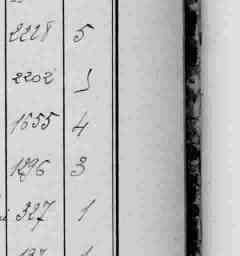 2228 5
2202
1655 4
1296 3
327 1